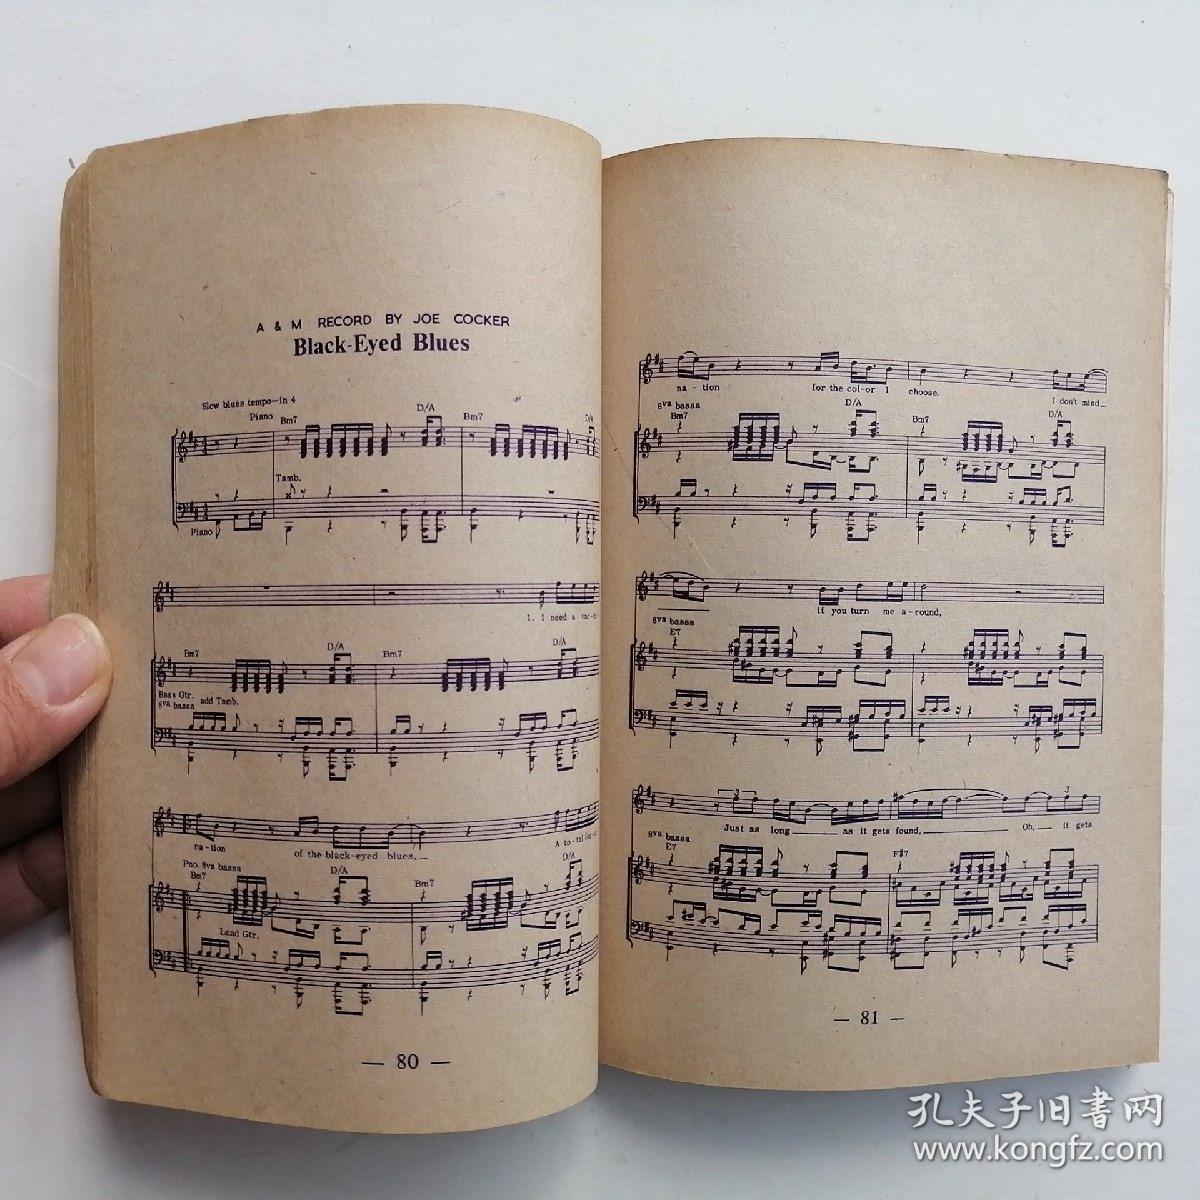 A & M RECORD BY JOE COCKER
Black-Eyed Blues
Slow blues tempo—in 4
Piano Bm7 D/A Bm7 D/A
Tamb.
Piano
1. I need a vac-ci
Bm7 D/A Bm7 D/A
Bass Gtr. add Tamb.
8va bassa
na - tion of the black-eyed blues,
Pno 8va bassa
Bm7 D/A Bm7 D/A
Lead Gtr.
— 80 —
na - tion for the col-or I choose. I don't mind
8va bassa
Bm7 D/A Bm7 D/A
if you turn me a-round,
8va bassa
E7
3 3 3
Just as long as it gets found, Oh, it gets
8va bassa
E7 F#7
— 81 —
孔夫子旧書网
www.kongfz.com